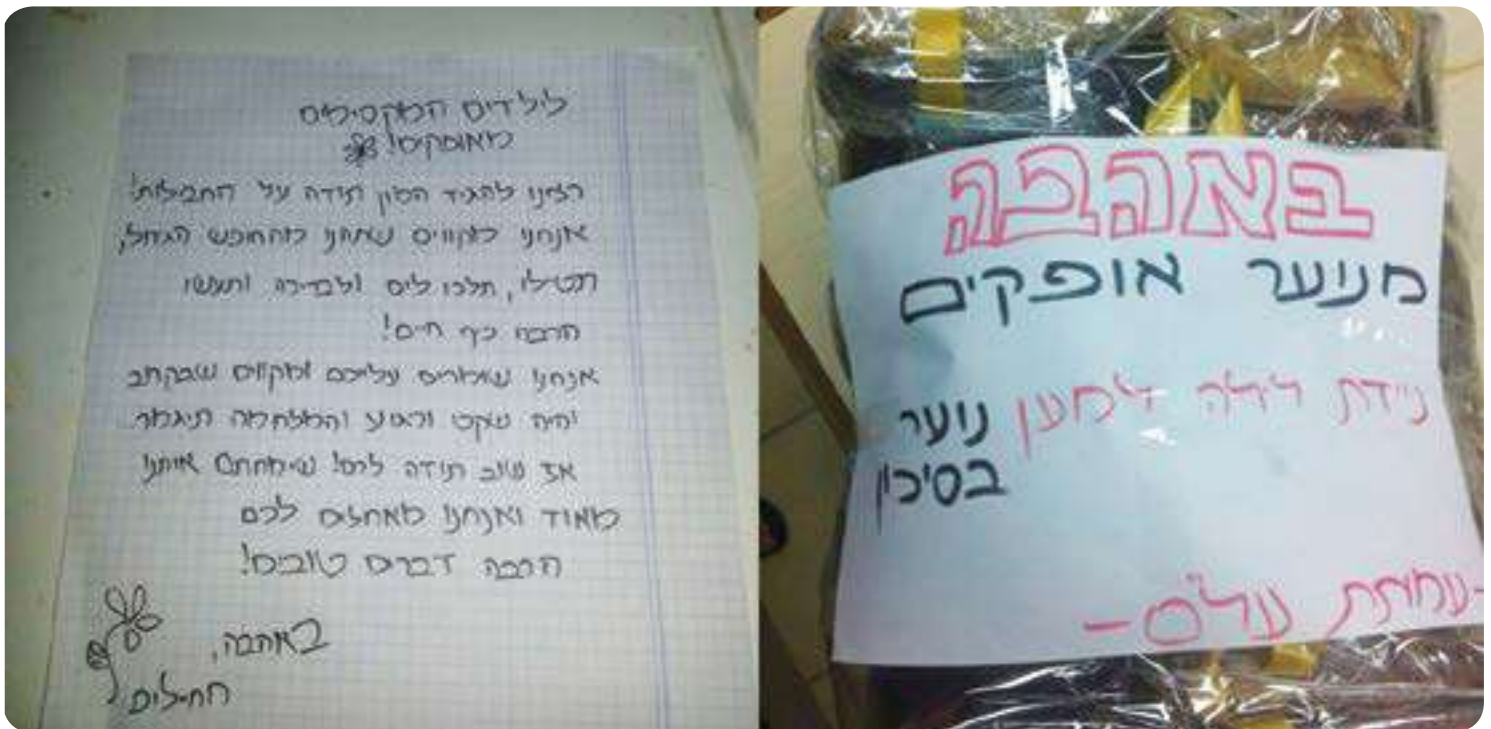 לילדים המקסימים
מאופקים!
רצינו להגיד המון תודה על החבילות!
אנחנו מקווים שתהנו מהחופש הגדול,
תטיילו, תלכו לים ולבריכה ותעשו
הרבה כיף חיים!
אנחנו שומרים עליכם ומקווים שבקרוב
יהיה שקט ורגוע והמלחמה תיגמר.
אז שוב תודה לכם! שימחתם אותנו
מאוד ואנחנו מאחלים לכם
הרבה דברים טובים!
באהבה,
חיילים
באהבה
מנוער אופקים
ניידת לילה למען נוער
בסיכון
-עמותת עלם-